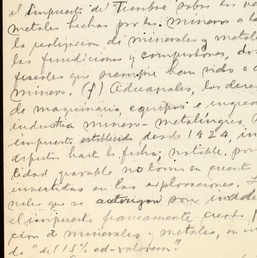 el Impuesto del Timbre sobre las
metales hechas por los mineros a
la realización de minerales y metales
las fundiciones y compradores,
fiscales que siempre han sido a
minero. (f) Aduanales, los
de maquinaria, equipos e
industria minero-metalúrgica,
impuesto establecido desde 1924,
hasta la fecha, notable, por
lidad gravable no toma en cuenta
invertidas en las exploraciones.
que se autorizan por
el impuesto francamente creado
ción de minerales y metales, en
"del 15% ad-valorem".